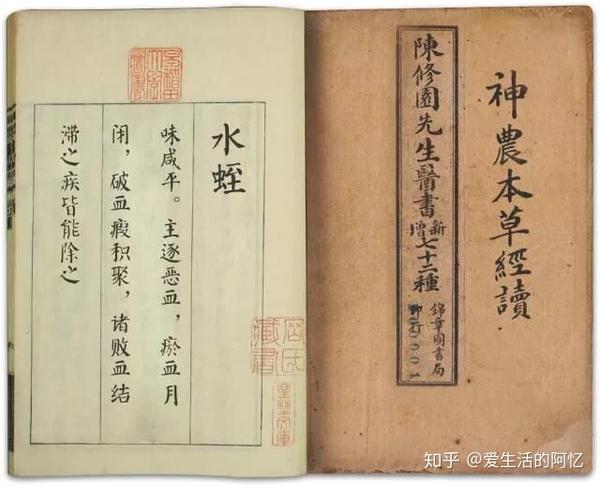 神農本草經讀
陳修園先生醫書新增七十二種
錦章圖書局
印行
水蛭
味咸平。主逐恶血，瘀血月
闭，破血瘕积聚，诸败血结
滞之疾皆能除之
知乎 @爱生活的阿忆